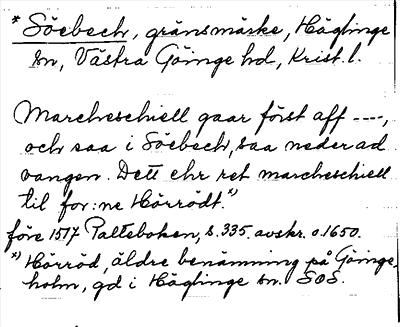 * Söebech, gränsmärke, Häglinge
sn, Västra Göinge hd, Krist. l.
Marcheschiell gaar först aff ----,
och saa i Söebech, saa neder ad
vangen. Dett ehr ret marcheschiell
til for:ne Hörrödt.*)
före 1517 Palteboken, s. 335. avskr. o. 1650.
*) Hörröd, äldre benämning på Göinge-
holm, gd i Häglinge sn. SOS.